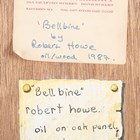 'Bellbine'
by
Robert Howe.
oil/wood 1987.
"Bellbine"
robert howe.
oil on oak panel